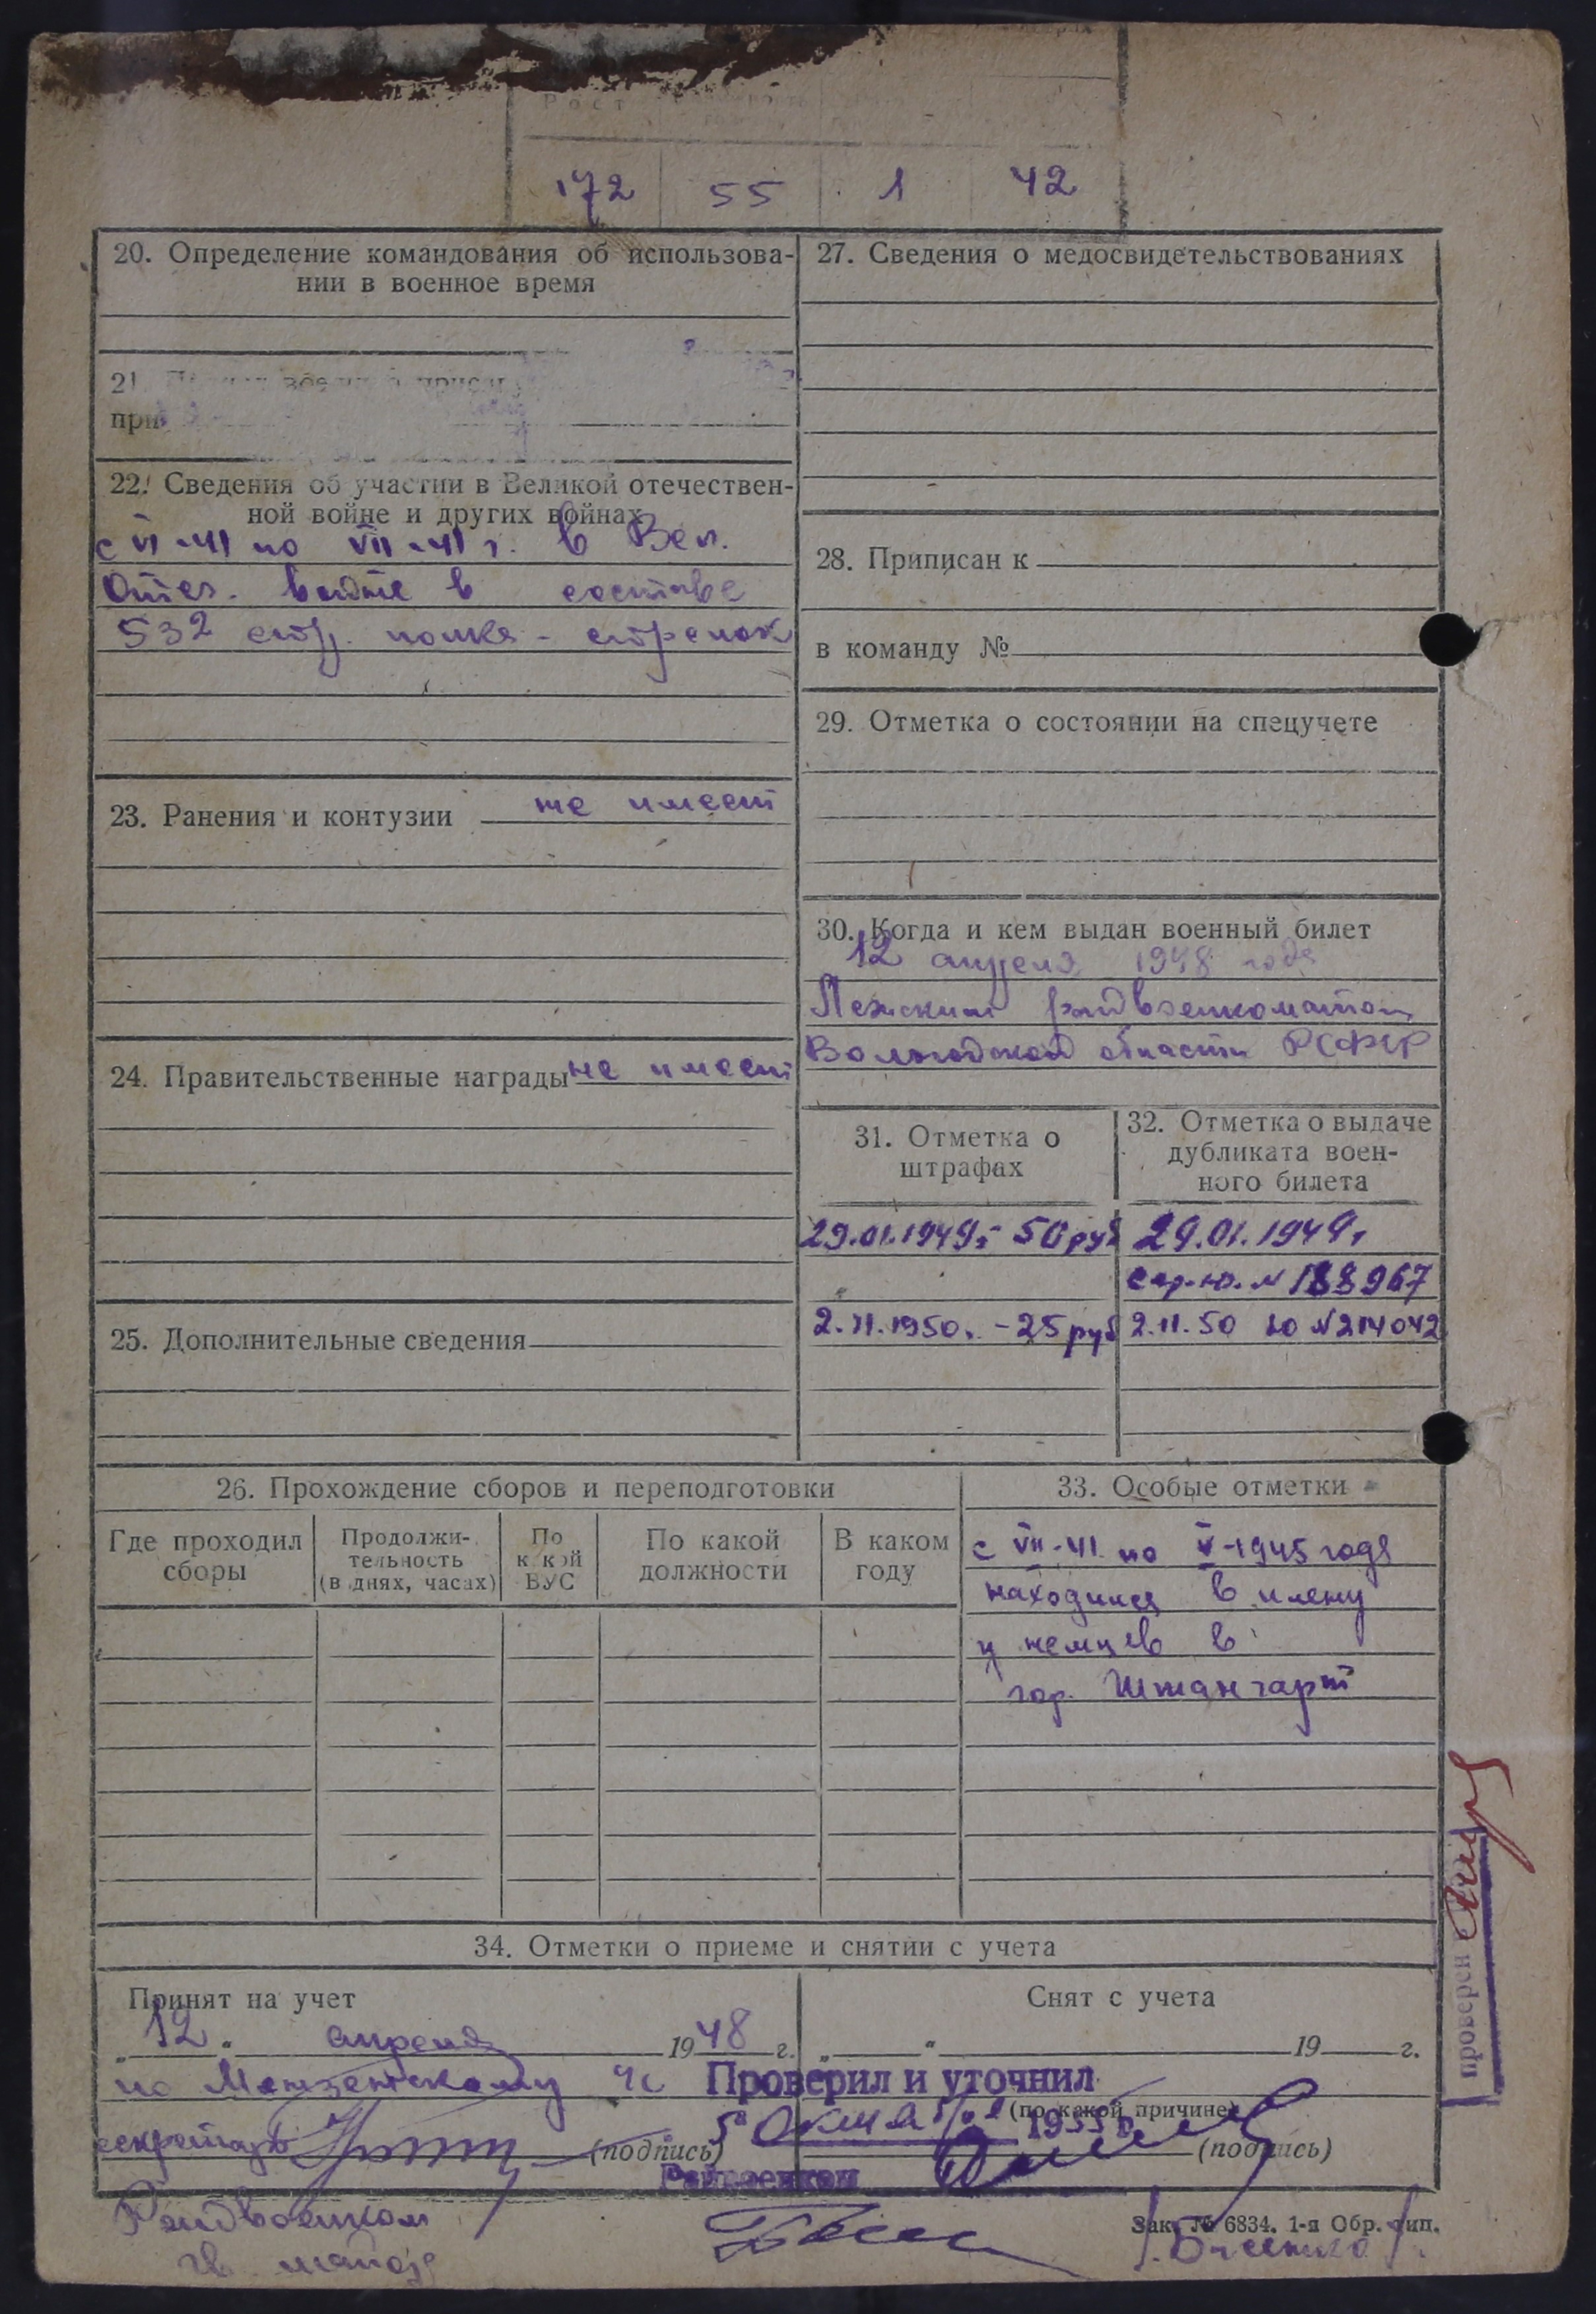 Рост
172 55 1 42
20. Определение командования об использова-
нии в военное время
21.
при
22. Сведения об участии в Великой отечествен-
ной войне и других войнах
с VI-41 по VII-41 г. в Вел.
Отеч. войне в составе
532 стр. полка - стрелок
23. Ранения и контузии не имеет
24. Правительственные награды не имеет
25. Дополнительные сведения
27. Сведения о медосвидетельствованиях
28. Приписан к
в команду №
29. Отметка о состоянии на спецучете
30. Когда и кем выдан военный билет
12 апреля 1948 года
Лежским райвоенкоматом
Вологодской области РСФСР
31. Отметка о
штрафах
29.01.1949г - 50 руб
2.II.1950г. - 25 руб
32. Отметка о выдаче
дубликата воен-
ного билета
29.01.1949г
сер. Ю. № 188967
2.11.50 Ю №214042
26. Прохождение сборов и переподготовки
Где проходил
сборы
Продолжи-
тельность
(в днях, часах)
По
какой
ВУС
По какой
должности
В каком
году
33. Особые отметки
с VII-41 по V-1945 года
находился в плену
у немцев в
гор. Штангарт
34. Отметки о приеме и снятии с учета
Принят на учет
"12" апреля 1948 г.
по
секретарь (подпись)
Райвоенком
гв. майор
Снят с учета
" " 19 г.
Проверил и уточнил
(по какой причине)
5 октября 1955 г.
(подпись)
Райвоенком
Зак. № 6834. 1-я Обр. тип.
проверен